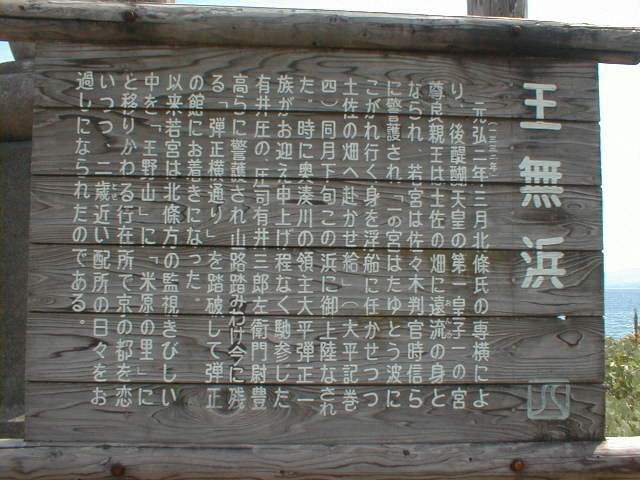 王無浜
元弘二年(一三三二年)三月北條氏の専横によ
り、後醍醐天皇の第一皇子一の宮
尊良親王は土佐の畑に遠流の身と
なられ 若宮は佐々木判官時信ら
に警護され「一の宮はたゆとう波に
こがれ行く身を浮船に任かせつつ
土佐の畑へ赴かせ給 (大平記巻
四)同月下旬この浜に御上陸なされ
た。時に奥湊川の領主大平弾正一
族がお迎え申上げ程なく馳参じた
有井庄の庄司有井三郎左衛門尉豊
高らに警護され山路踏みわけ今に残
る「弾正横通り」を踏破して弾正
の館にお着きになった。
以来若宮は北條方の監視きびしい
中を「王野山」に「米原の里」に
と移りかわる行在所で京の都を恋
いつつ、二歳近い配所の日々をお
過しになられたのである。